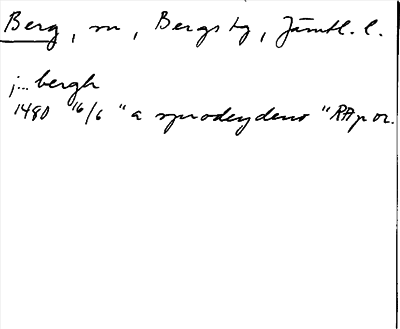 Berg, sn, Bergs tg, Jämtl. l.
j... bergh
1480 16/6 "a sprodeydens" RAp or.